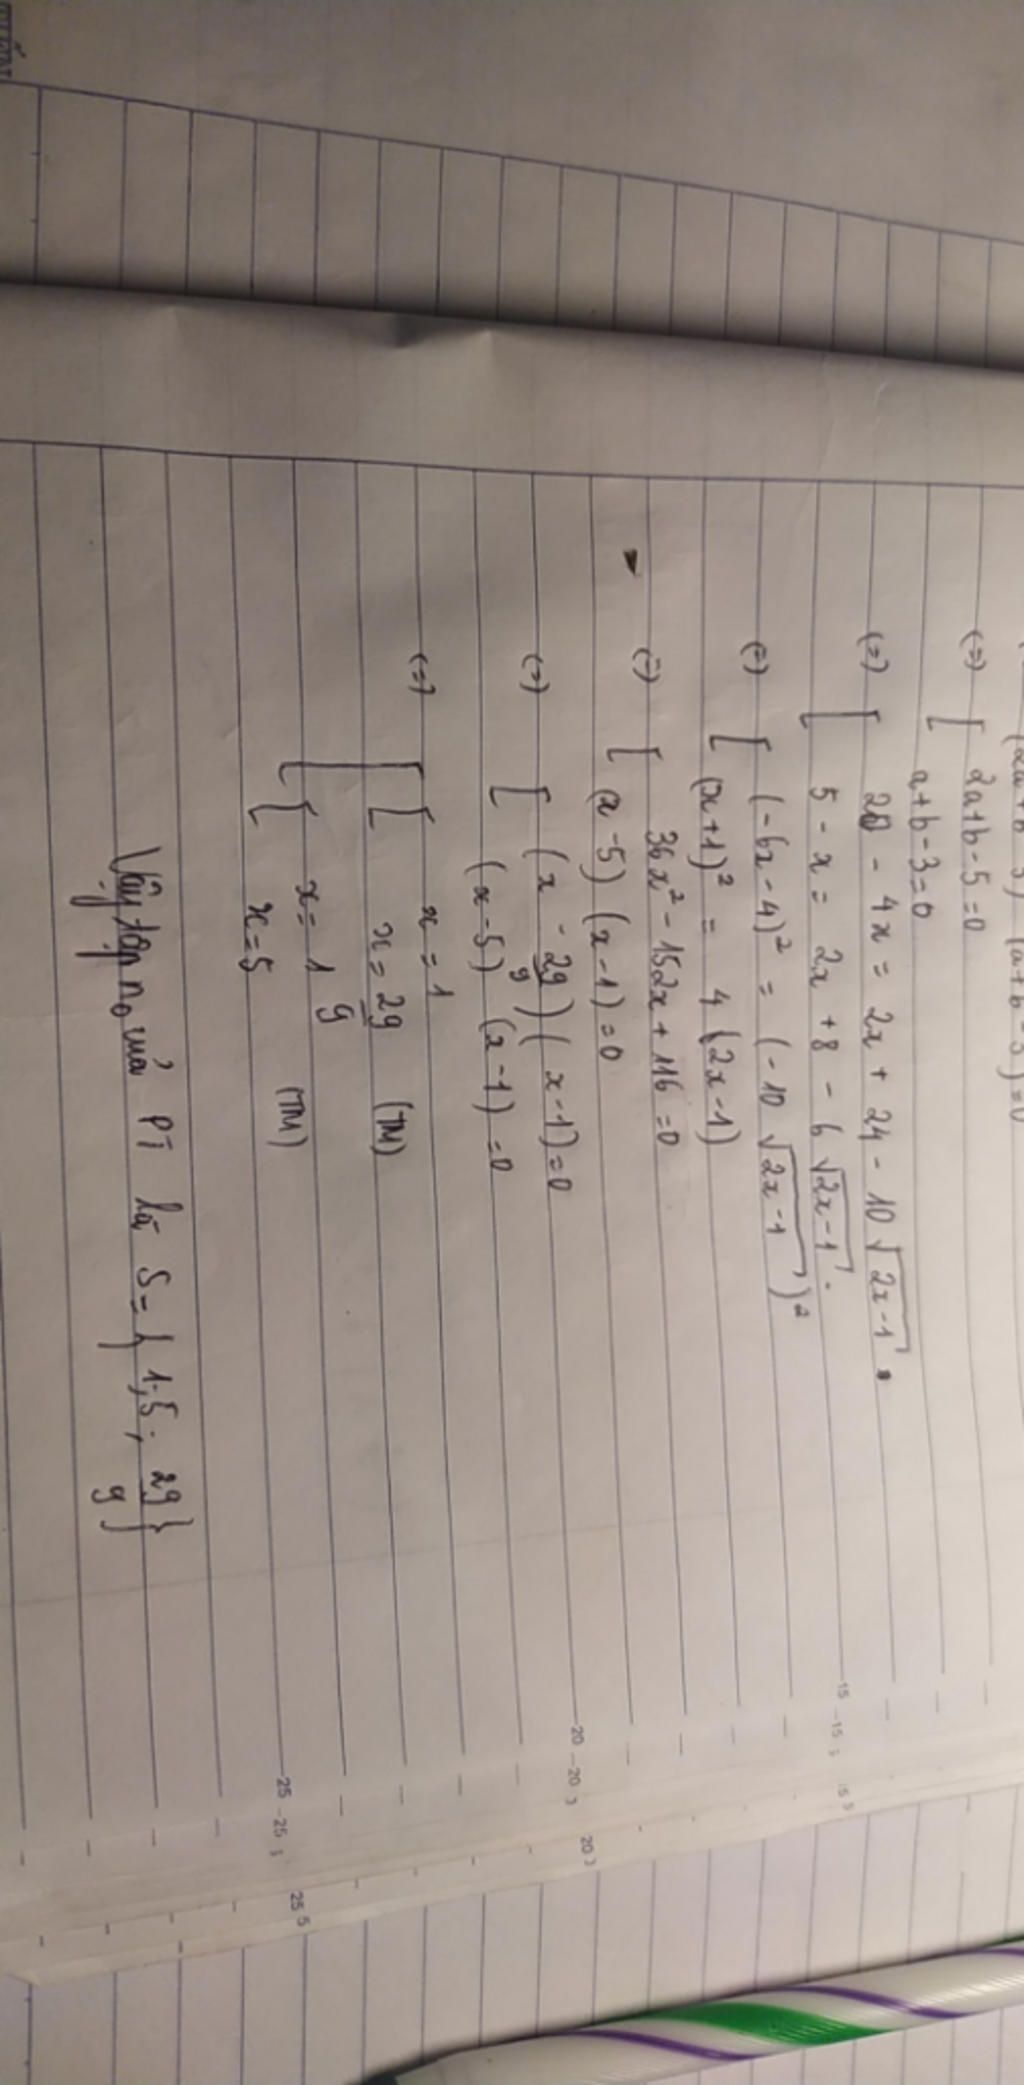 (2a+b-5) (a+b-3)=0
(=) [ 2a+b-5=0
a+b-3=0
(=) [ 20 - 4x = 2x + 24 - 10√2x-1
5 - x = 2x + 8 - 6√2x-1
(=) [ (-6x-4)² = (-10√2x-1)²
(x+1)² = 4(2x-1)
(=) [ 36x² - 152x + 116 = 0
(x-5)(x-1)=0
(=) [ (x - 29/9)(x-1)=0
(x-5)(x-1)=0
(=) [ [ x=1
x=29/9 (TM)
[ x=1 (TM)
x=5
Vậy tập n₀ của PT là S={1;5; 29/9}
15 15
20 20 20
25 25 25